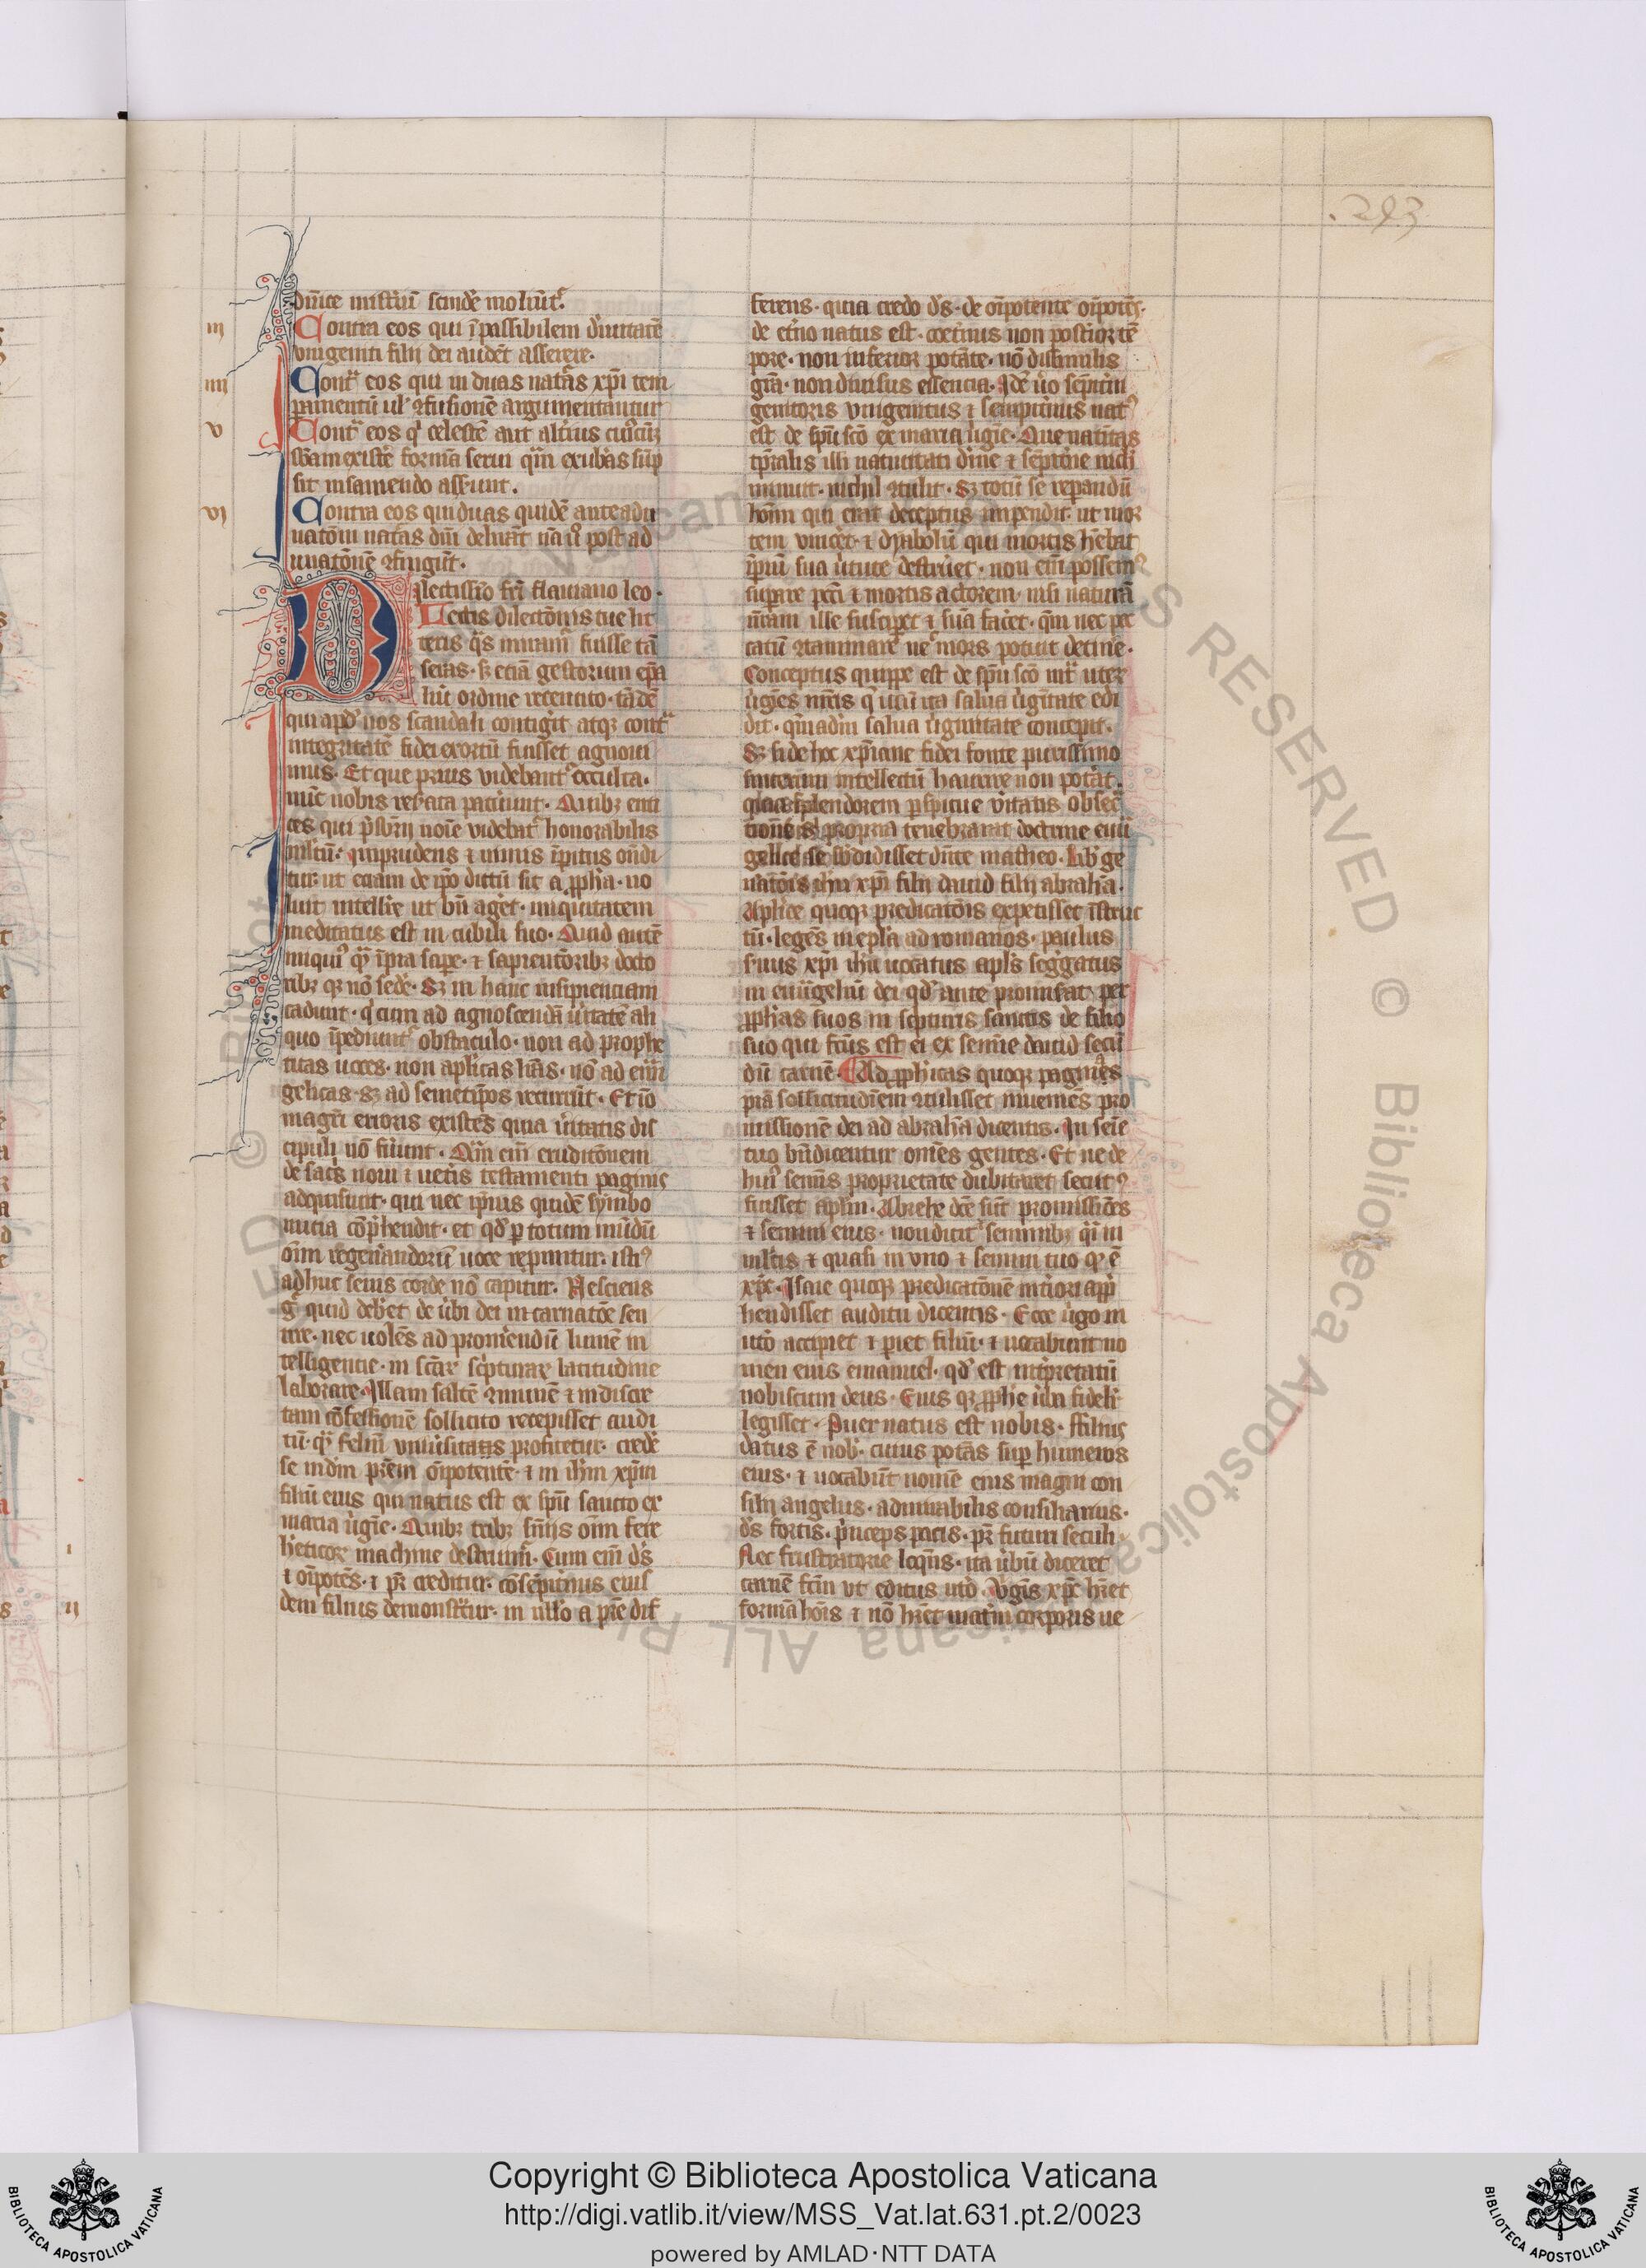 .293.
dn̄ice mist̾iū scindẽ moliūt᷒.
iij
Contra eos qui ī passibilem diuitatē
vnigeniti filij dei audēt asserere.
iiij
Cont̾ eos qui in duas nat̾as xp̄i tem
pamentū ul' ꝯfusionē argumentantur
v
Cont̾ eos q' celestē aut alt̾ius cui᷒cūqꝫ
sb̄am existē formā serui q̄m ex nob̾ sūp
sit insaniendo asserunt.
vi
Contra eos qui duas quidē ante adu
natōm nat̾as dn̄i deliuāt un̄ ū post ad
unatōnē ꝯfingūt.
Dilectissīo fr̄i flauiano leo.
Lectis dilectōnis tue lit
teris q̾s miram᷒ fuisse tā
seras. ⁊ etiā gestorum ep̄a
liū ordine recensito. tādē
qui apd' uos scandali contigit atqꝫ cont̾
integritatē fidei exortū fuisset agnoui
mus. Et que prius videbant᷒ occulta.
nūc nobis res̾ata patuunt. Quibꝫ euti
ces qui p̾sbr̄ij noīe videbat᷒ honorabilis
mltū. imprudens ⁊ nimis īpitus on̄di
tur. ut etiam de ip̄o dictū sit a ꝓph̄a. no
luit intellig̾e ut bn̄ aget. iniquitatem
meditatus est in cubili suo. Quid autē
iniqui᷒ qm̄ īpia sape. ⁊ sapientōribꝫ docto
ribꝫ qꝫ nō cedē. Sꝫ in hanc insipienciam
cadunt. q' cum ad agnoscendā u̾itatē ali
quo īpediunt᷒ obstaculo. non ad prophe
ticas uoces. non aplicas līas. nō ad euā
gelicas. sꝫ ad semetip̄os recurrūt. Et iō
magr̄i erroris existēs quia u̾itatis dis
cipuli nō fuunt. Qm̄ eni eruditōnem
de sac̾s noui ⁊ uet̾is testamenti paginis
adquisiuit. qui nec ip̄ius quidē symbo
inicia cōp̾hendit. et qd' p totum mūdū
oīm regen̾andorū uoce repmitur. isti᷒
adhuc senis corde nō capitur. Nesciens
g̾ quid deb̾et de ūbi dei incarnatōe sen
tire. nec uolēs ad promendū lumē in
telligentie. in scāꝝ sc̾pturaꝝ latitudine
laborare. Illam saltē ꝯmunē ⁊ indiscre
tam cōfessionē sollicito recepisset audi
tū. q' fideliū vniu̾sitas profitetur. crede
se in dm̄ prēm oīpotentē. ⁊ in ih̄m xp̄m
filiū eius qui natus est ex spū sancto ex
maria u̾gīe. Quibꝫ tribꝫ sn̄ijs oīm fere
heticoꝝ machine destruūt᷒. Cum eni ds̄
i
⁊ oīpotēs. ⁊ pr̄ creditur. cōsēpit̾nus eius
dem filius demonstr̾tur. in ullo a pr̄e dif
ii
ferens. quia credo ds̄. de oīpotente oīpotēs.
de et̾no natus est. coet̾nus non posterior tē
pore. non inferior potāte. nō dissimilis
glīa. non diuisus essencia. Idē uo sēpit̾ni
genitoris vnigenitus ⁊ sempit̾nus nat᷒
est de spū sco ex maria u̾gīe. Que natiuitas
tp̄ralis illi natiuitati diuine ⁊ sēpit̾ne nichil
minuit. nichil ꝯtulit. Sꝫ totū se reparandū
hom̄ qui erat deceptus impendit. ut mor
tem vincet. ⁊ dyabolū qui mortis hēbat
īpiū sua u̾tute destruet. non eni possem᷒
supare pctī ⁊ mortis actorem. nisi naturā
nr̄am ille suscipet ⁊ suā facet. quē nec pec
catū ꝯtaminare nec mors potuit detine.
Conceptus quippe est de spū sco int̾ uterꝫ
u̾gēs mr̄is q' illū ita salua u̾ginitate edi
dit. quēadm̄ salua u̾ginitate concepit.
Sꝫ si de hoc xp̄iane fidei fonte purissimo
sincerum intellectū haurire non pot̾at.
quia splendorem pspicue u̾itatis obseca
tionē si propria tenebrarat doctrine euā
gelice se sb̾didisset dn̄ce matheo. Lib̾ ge
natōis ih̄u xp̄i filij dauid filij abrahā.
Aplice quoqꝫ predicatōis expetisset īstruc
tū. legēs in epl̄a ad romanos. paulus
s̾uus xp̄i ih̄u uocatus apls̄ seg̾gatus
in euāgeliū dei qd' ante promis̾at per
ꝓphetas suos in sc̾pturis sanctis de filio
suo qui fcūs est ei ex semīe dauid secū
dū carnē. Ad ꝓph̄icas quoqꝫ paginas
piā sollicitudinem ꝯtulisset. inueniēs pro
missionē dei ad abrahā dicentis. In seīe
tuo bn̄dicentur omēs gentes. Et ne de
hui᷒ semīs proprietate dubitaret secut᷒
fuisset aplm̄. Abrahe dce sūt promissiōes
⁊ semini eius. non dicit᷒ seminibꝫ q̾i in
mltis ⁊ quasi in vno ⁊ semini tuo qꝫ ē
xpc̄. Isaie quoqꝫ predicatōnē int̾iori app̾
hendisset auditu dicentis. Ecce u̾go in
ut̾o accipiet ⁊ piet filiū. ⁊ uocabunt no
men eius emanuel. qd' est int̾pretatū
nobiscum deus. Eius qꝫ ꝓph̄e u̾ba fidelit̾
legisset. Puer natus est nobis. ffilius
datus ē nob̾. cuius potās sup humeros
eius. ⁊ uocabūt nomē eius magni con
silij angelus. admirabilis consiliarius.
ds̄ fortis. p̾nceps pacis. pr̄ futuri seculi.
Nec frustratorie loqn̄s. ita u̾bū diceret
carnē fcm̄ ut editus ut̾o u̾gīs xpc̄ hr̄et
formā hoīs ⁊ nō hr̄et matn̄i corporis ue
Copyright © Biblioteca Apostolica Vaticana
http://digi.vatlib.it/view/MSS_Vat.lat.631.pt.2/0023
powered by AMLAD·NTT DATA
BIBLIOTECA APOSTOLICA VATICANA
BIBLIOTECA APOSTOLICA VATICANA